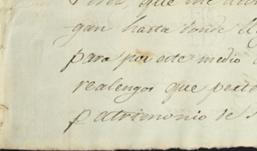 que me
gan hasta donde
para por este medio
realengos que
patrimonio de